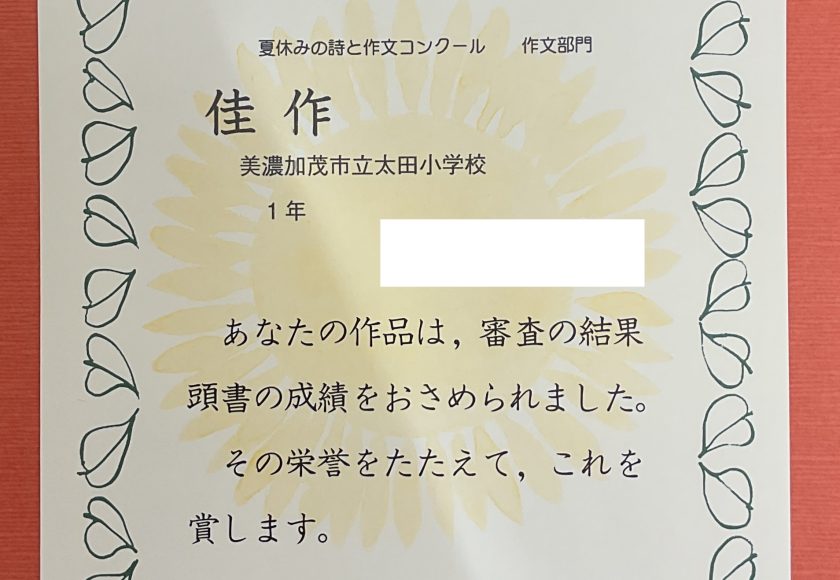 夏休みの詩と作文コンクール　作文部門
佳作
美濃加茂市立太田小学校
1年
あなたの作品は，審査の結果
頭書の成績をおさめられました。
その栄誉をたたえて，これを
賞します。